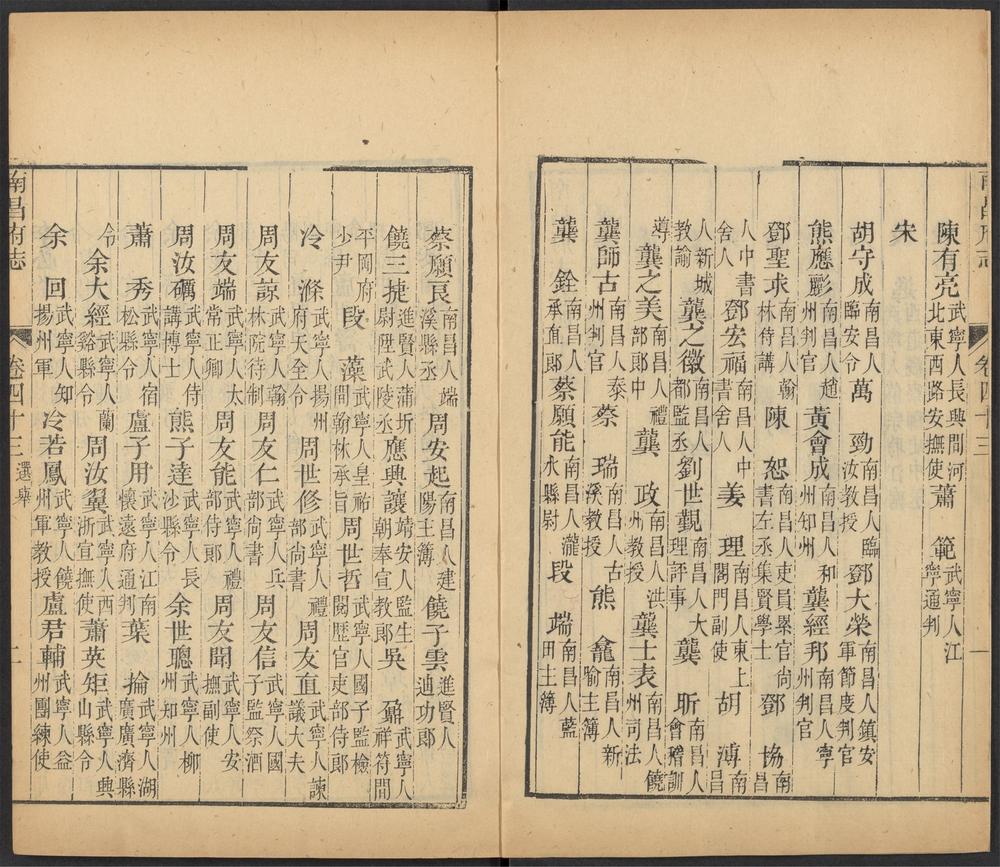 卷四十三 一
陳有亮武寧人長興間河北東西路安撫使蕭範武寧人江寧通判
胡守成南昌人臨安令萬勁南昌人臨汝教授鄧大榮南昌人鎮安軍節度判官
熊應彪南昌人趙州判官黃會成南昌人和州知州龔經邦南昌人寧州判官
鄧聖求南昌人翰林侍講陳恕南昌人吏員累官尚書左丞集賢學士鄧協南昌
人中書舍人鄧宏福南昌人中書舍人姜理南昌人東上閤門副使胡溥南昌
人新城教諭龔之徽南昌人都監丞劉世覲南昌人大理評事龔昕南昌人會稽訓
導龔之美南昌人禮部郎中龔政南昌人洪州教授龔士表南昌人饒州司法
龔師古南昌人泰州判官蔡瑞南昌人古溪教授熊龕南昌人新喻主簿
龔銓南昌人承直郎蔡願能南昌人瀧水縣尉段瑞南昌人藍田主簿
蔡願良南昌人端溪縣丞周安起南昌人建陽主簿饒子雲進賢人迪功郎
饒三捷進賢人蒲圻尉陞武陵丞應興讓靖安人監生朝奉宣教郎吳鼐武寧人祥符間
平岡府少尹段藻武寧人皇祐間翰林承旨周世哲武寧人國子監檢閱歷官吏部侍郎
冷滌武寧人揚州府天全令周世修武寧人禮部尚書周友直武寧人諫議大夫
周友諒武寧人翰林院待制周友仁武寧人兵部尚書周友信武寧人國子監祭酒
周友端武寧人太常正卿周友能武寧人禮部侍郎周友聞武寧人安撫副使
周汝礪武寧人侍講博士熊子達武寧人長沙縣令余世聰武寧人柳州知州
蕭秀武寧人宿松縣令盧子用武寧人江南懷遠府通判葉掄武寧人湖廣廣濟縣
令余大經武寧人蘭谿縣令周汝翼武寧人西浙宣撫使蕭英矩武寧人興山縣令
余回武寧人知揚州軍冷若鳳武寧人饒州軍教授盧君輔武寧人益州團練使
南昌府志 卷四十三 選舉 二